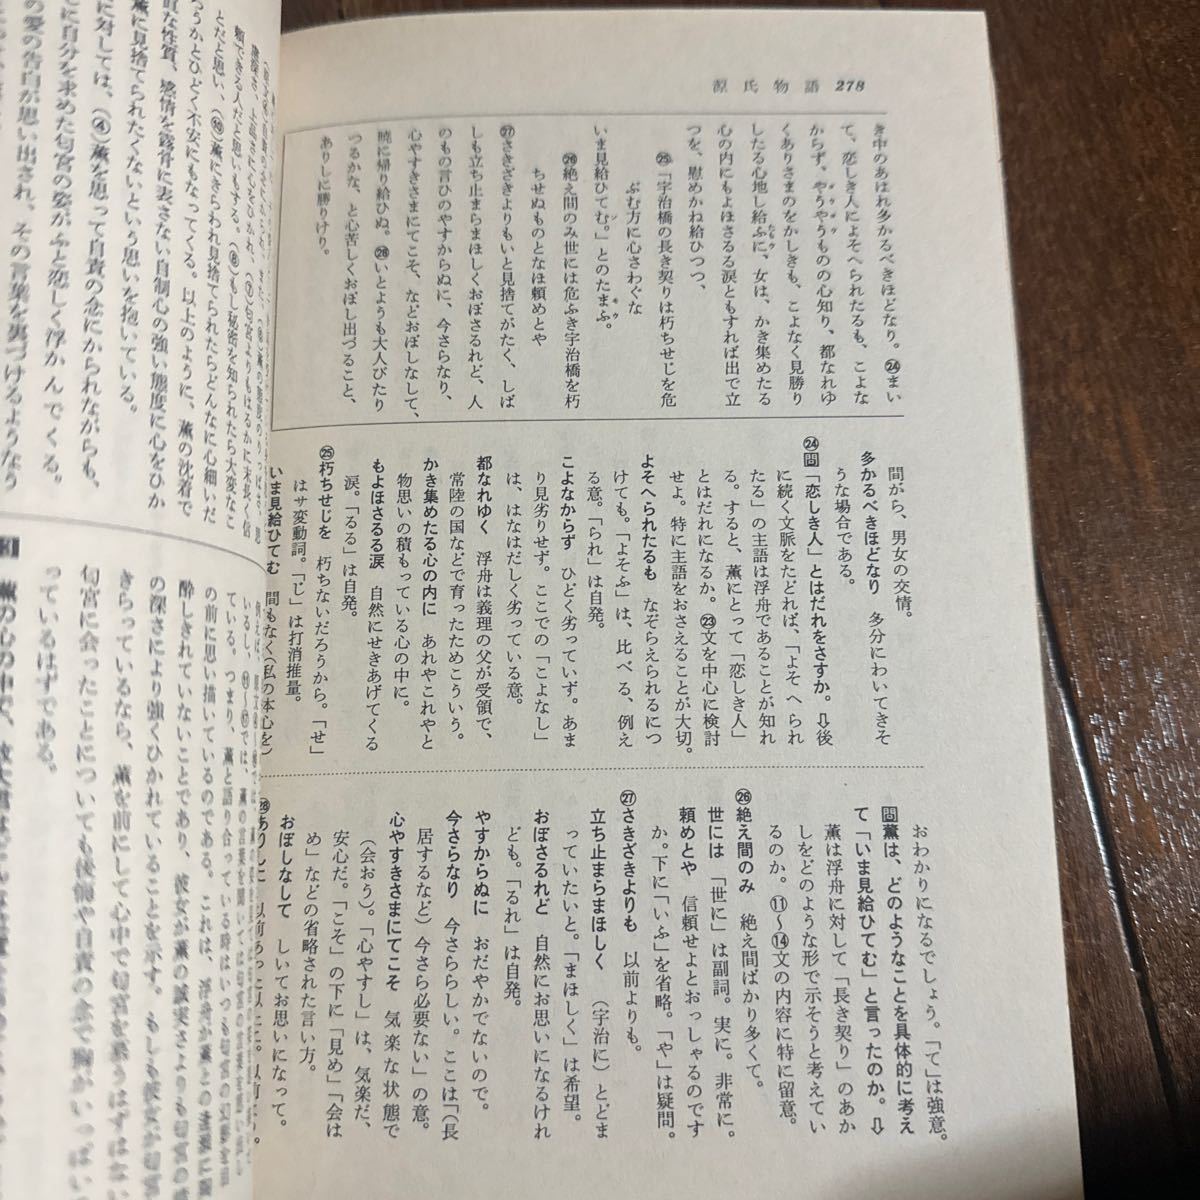 源氏物語 278
き中のあはれ多かるべきほどなり。㉔まい
て、恋しき人によそへられたるも、こよな
からず、やうやうものの心知り、都なれゆ
くありさまのをかしきも、こよなく見勝り
したる心地し給ふに、女は、かき集めたる
心の内にもよほさるる涙ともすれば出で立
つを、慰めかね給ひつつ、
㉕「宇治橋の長き契りは朽ちせじを危
ぶむ方に心さわぐな
いま見給ひてむ。」とのたまふ。
㉖絶え間のみ世には危ふき宇治橋を朽
ちせぬものとなほ頼めとや
㉗さきざきよりもいと見捨てがたく、しば
しも立ち止まらまほしくおぼさるれど、人
のもの言ひのやすからぬに、今さらなり、
心やすきさまにてこそ、などおぼしなして、
暁に帰り給ひぬ。㉘いとようも大人びたり
つるかな、と心苦しくおぼし出づること、
ありしに勝りけり。
間がら、男女の交情。
多かるべきほどなり 多分にわいてきそ
うな場合である。
㉔問「恋しき人」とはだれをさすか。⇩後
に続く文脈をたどれば、「よそへられ
たる」の主語は浮舟であることが知れ
る。すると、薫にとって「恋しき人」
とはだれになるか。㉓文を中心に検討
せよ。特に主語をおさえることが大切。
よそへられたるも なぞらえられるにつ
けても。「よそふ」は、比べる、例え
る意。「られ」は自発。
こよなからず ひどく劣っていず。あま
り見劣りせず。ここでの「こよなし」
は、はなはだしく劣っている意。
都なれゆく 浮舟は義理の父が受領で、
常陸の国などで育ったためこういう。
かき集めたる心の内に あれやこれやと
物思いの積もっている心の中に。
もよほさるる涙 自然にせきあげてくる
涙。「るる」は自発。
㉕朽ちせじを 朽ちないだろうから。「せ」
はサ変動詞。「じ」は打消推量。
いま見給ひてむ 間もなく(私の本心を)
おわかりになるでしょう。「て」は強意。
問薫は、どのようなことを具体的に考え
て「いま見給ひてむ」と言ったのか。⇩
薫は浮舟に対して「長き契り」のあか
しをどのような形で示そうと考えてい
るのか。⑪〜⑭文の内容に特に留意。
㉖絶え間のみ 絶え間ばかり多くて。
世には 「世に」は副詞。実に。非常に。
頼めとや 信頼せよとおっしゃるのです
か。下に「いふ」を省略。「や」は疑問。
㉗さきざきよりも 以前よりも。
立ち止まらまほしく (宇治に)とどま
っていたいと。「まほしく」は希望。
おぼさるれど 自然にお思いになるけれ
ども。「るれ」は自発。
やすからぬに おだやかでないので。
今さらなり 今さららしい。ここは「(長
居するなど)今さら必要ない」の意。
心やすきさまにてこそ 気楽な状態で
(会おう)。「心やすし」は、気楽だ、
安心だ。「こそ」の下に「見め」「会は
め」などの省略された言い方。
おぼしなして しいてお思いになって。
㉘ありしに 以前あった以上に。以前より。
頼できる人だと思いもする。⑧もし秘密を知られたら大変なこ
とだと思い、⑩薫にきらわれ見捨てられたらどんなに心細いだ
ろうかとひどく不安にもなってくる。以上のように、薫の沈着で
直な性質、感情を露骨に表さない自制心の強い態度に心をひか
薫に見捨てられたくないという思いを抱いている。
に対しては、④薫を思って自責の念にかられながらも、
に自分を求めた匂宮の姿がふと恋しく浮かんでくる。
の愛の告白が思い出され、その言葉を裏づけるような
ている。つまり、薫と語り合っている時はいつも匂宮の
の前に思い描いているのである。これは、浮舟が薫との逢瀬に
酔しきれていないことであり、彼女が薫の誠実さよりも匂宮の
の深さにより強くひかれていることを示す。もしも彼女が匂宮
きらっているなら、薫を前にして心中で匂宮を思うはずはない
匂宮に会ったことについても後悔や自責の念で胸がいっぱい
っているはずである。